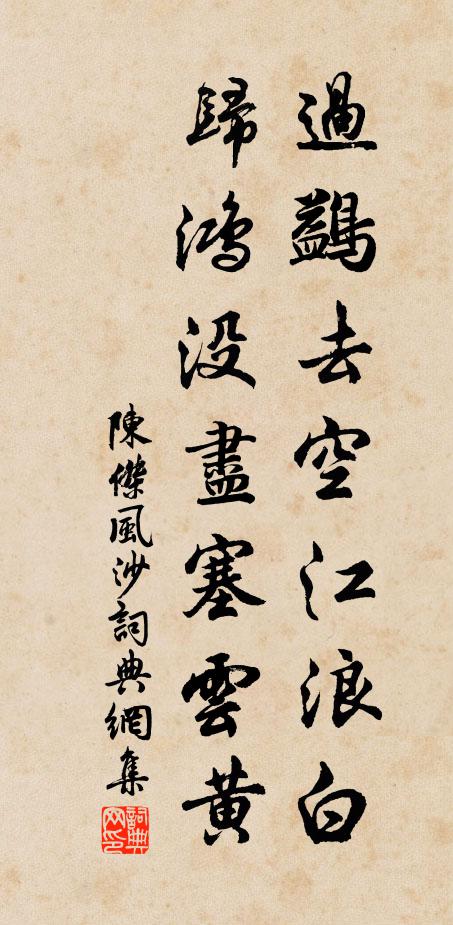 過鷁去空江浪白
歸鴻沒盡塞雲黃
陳傑風沙詞典網集
詞典网印